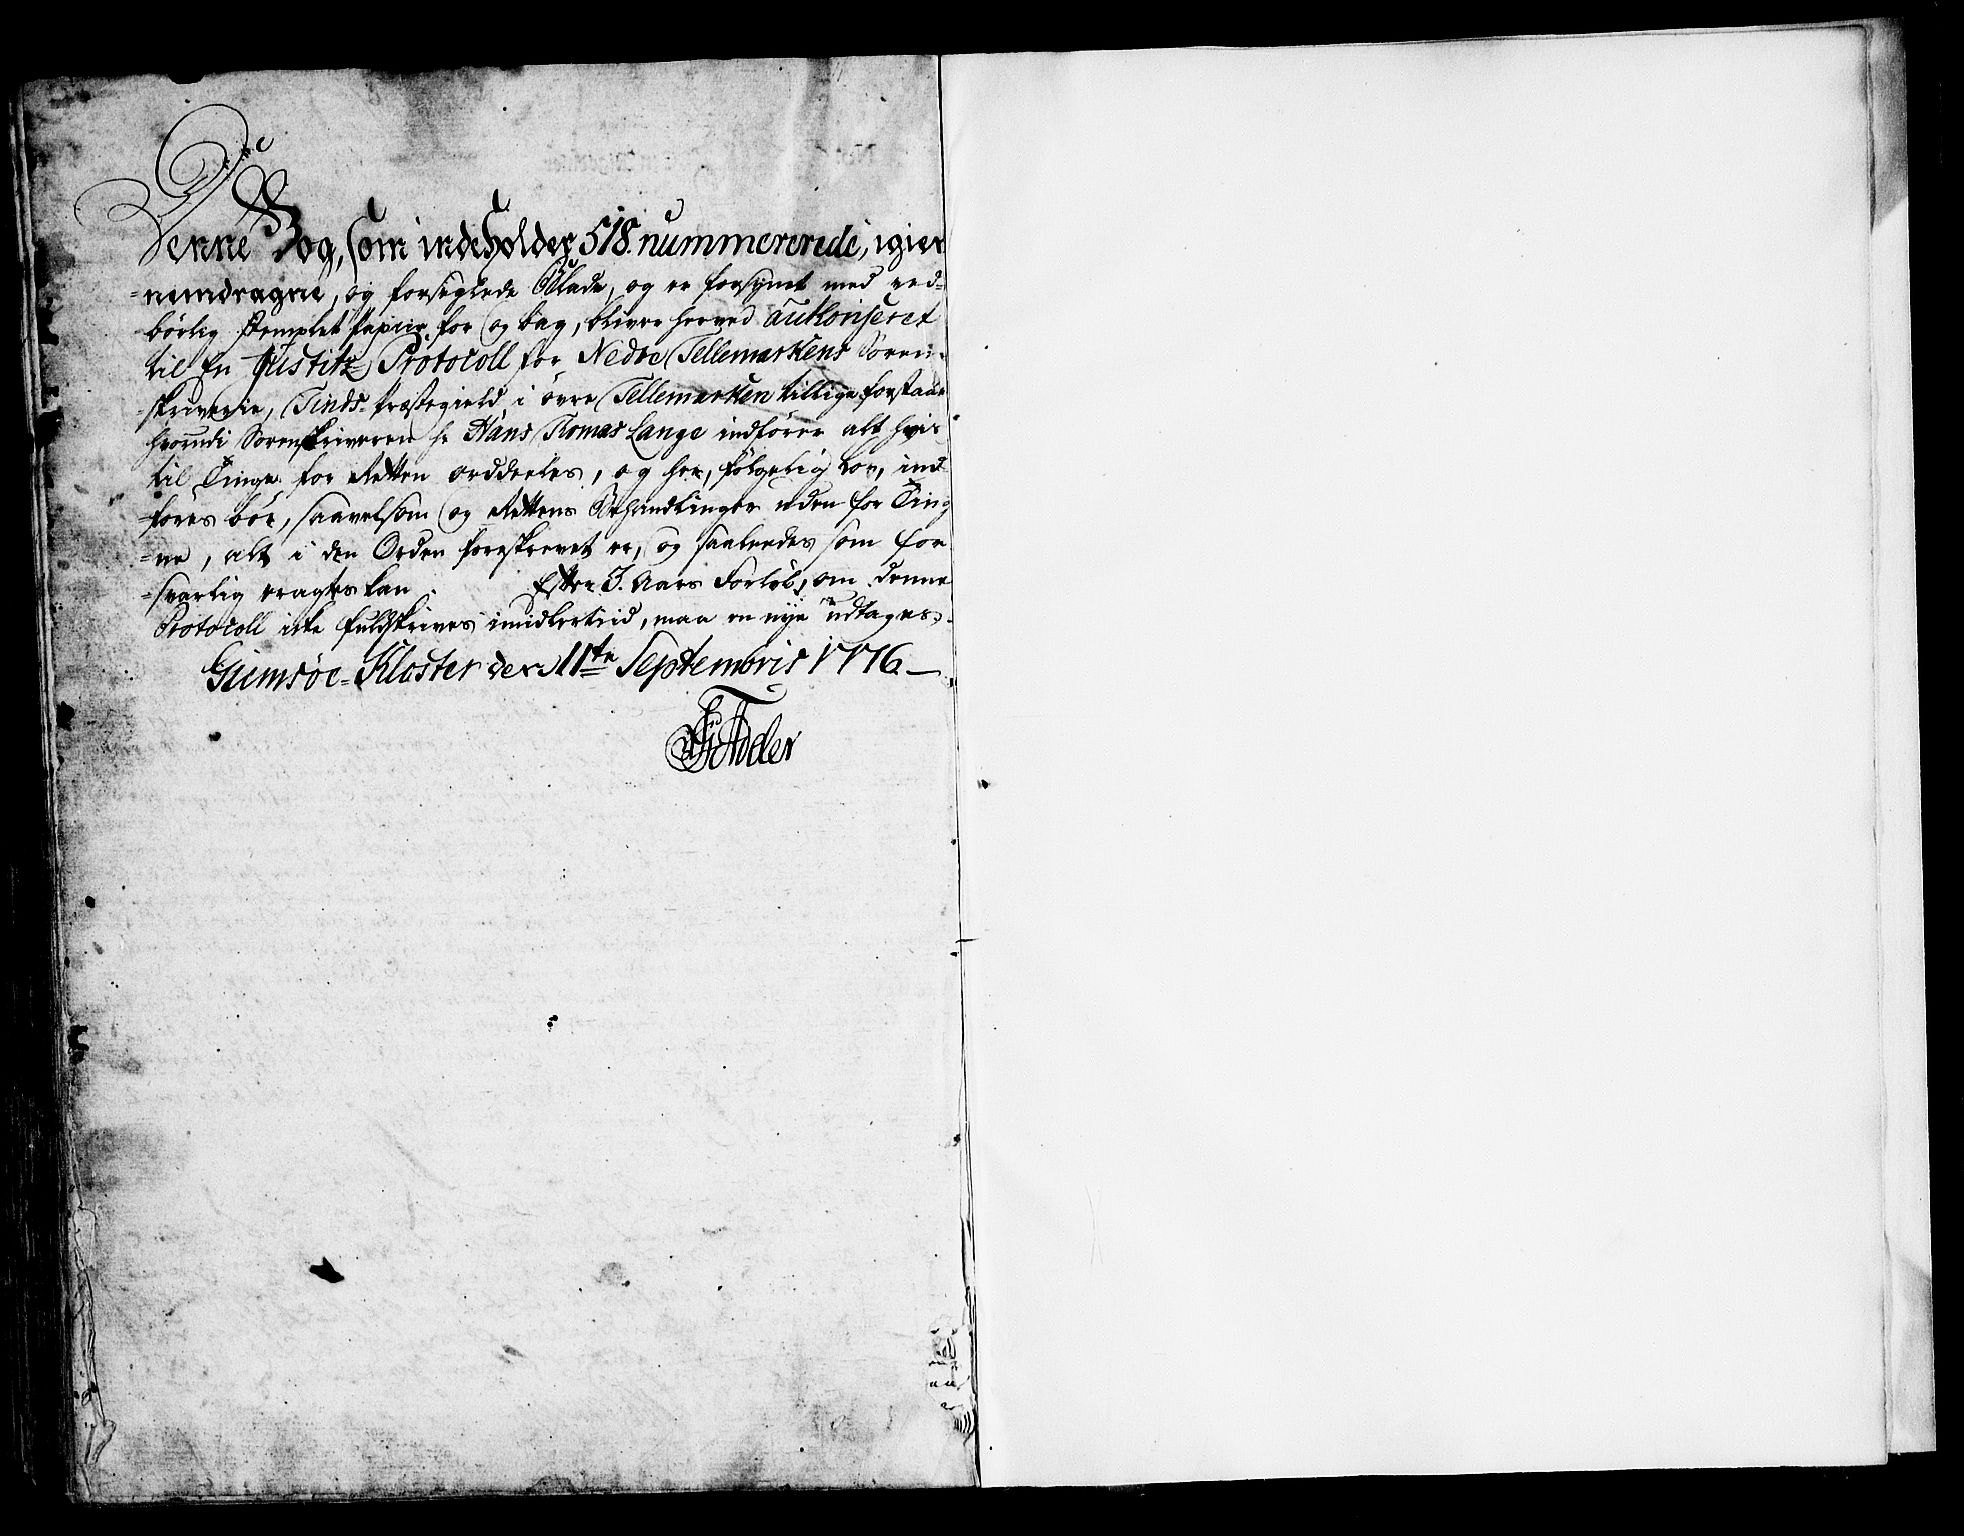 Denne Bog, som indeholder 518 nummererede, igien
=nemdragne, og forseglede Blade, og er forsynet med ved=
=børlig Stemplet Papiir for og bag, bliver herved authoriseret
til En Justitz Protocoll for Nedre Tellemarkens Soren=
=skriverie, Tinds Præstegield i øvre Tellemarken tillige forstaaet
hvorudi Sorenskriveren hr Hans Thomas Lange indfører alt hvis
til Tinge for Retten orddeeles, og her, følgelig Lov, ind
=føres bör, saavelsom og Rettens Behandlinger uden for Ting
=ne, alt i den Orden foreskrevet er, og saaledes som for
=svarlig eragtes kan. Efter 3. Aars Forløb, om denne
Protocoll ikke fuldskrives imidlertiid, maa en nÿe udtages.
Giemsøe=Kloster den 11te Septembris 1776
Adler